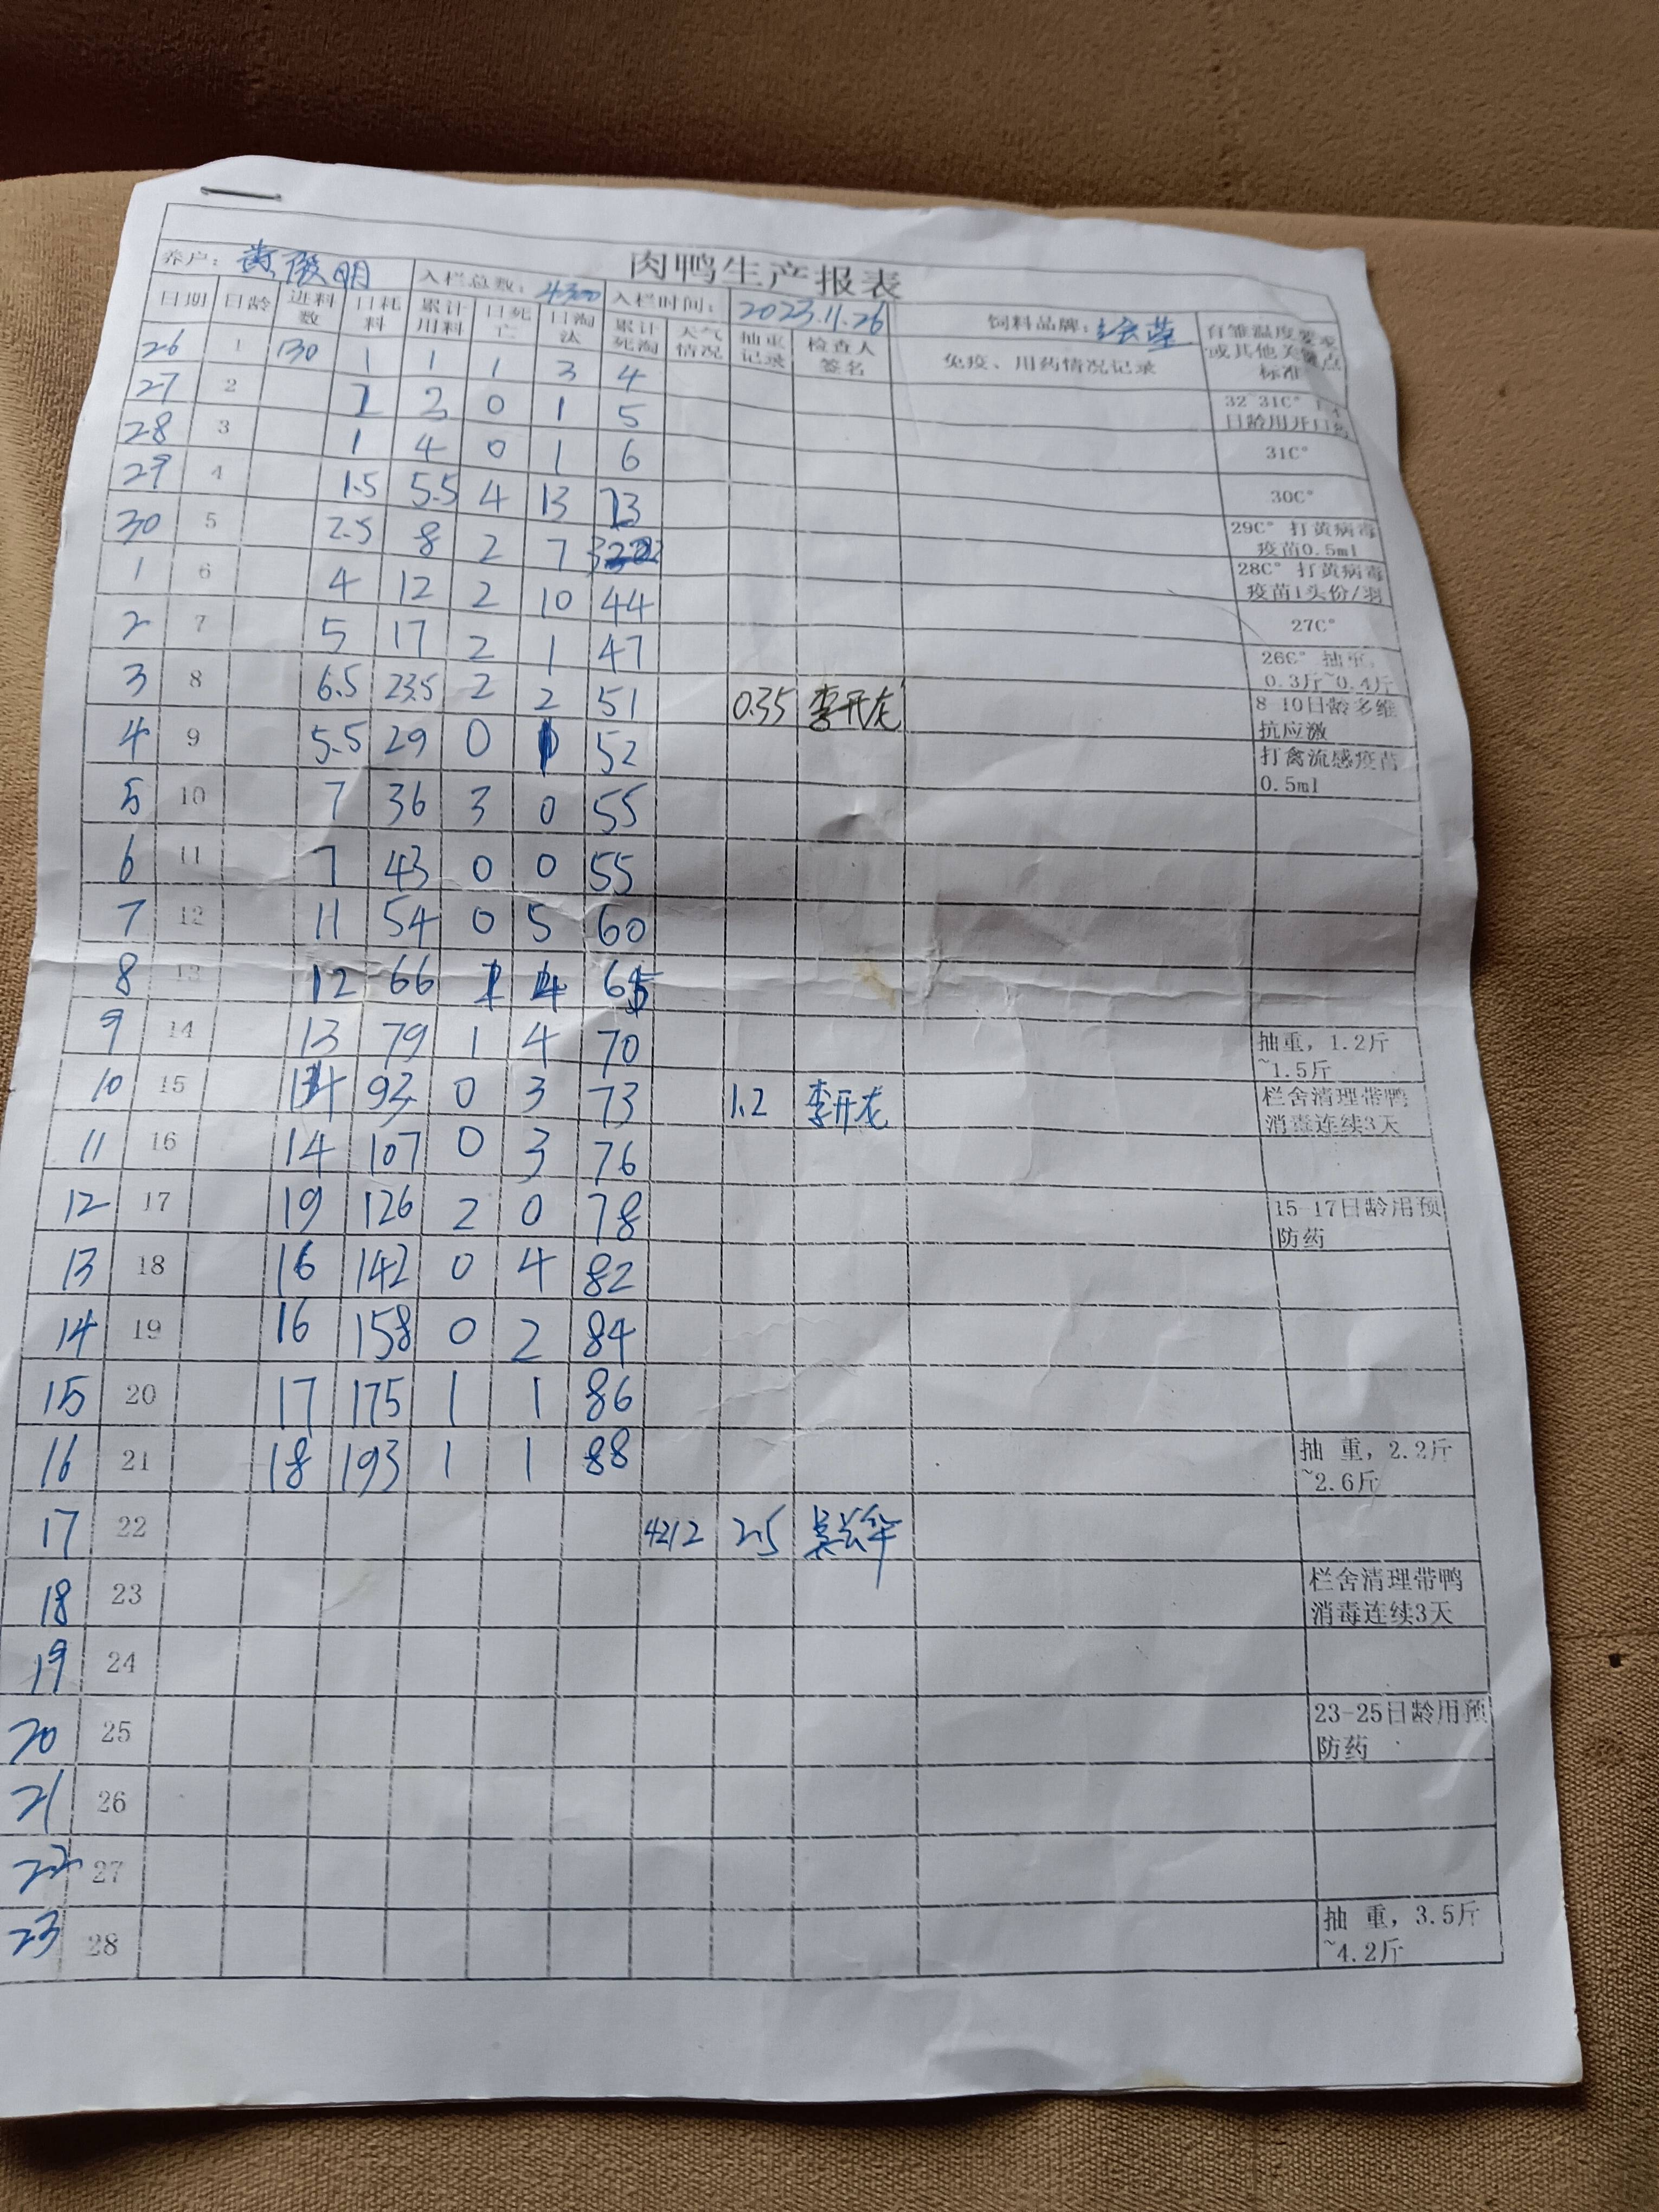 肉鸭生产报表
养户： 明 入栏总数：4300 入栏时间：2023.11.26 饲料品牌：
日期 日龄 进料数 日耗料 累计用料 日死亡 日淘汰 累计死淘 天气情况 抽重记录 检查人签名 免疫、用药情况记录 育雏温度要求或其他关键点标准
26 1 130 1 1 1 3 4
27 2 2 0 1 5 32~31C° 日龄用开口药
28 3 1 4 0 1 6 31C°
29 4 1.5 5.5 4 13 23 30C°
30 5 2.5 8 2 7 32 29C° 打黄病毒疫苗0.5ml
1 6 4 12 2 10 44 28C° 打黄病毒疫苗1头份/羽
2 7 5 17 2 1 47 27C°
3 8 6.5 23.5 2 2 51 0.35 李开龙 26C° 抽重，0.3斤~0.4斤
4 9 5.5 29 0 1 52 8-10日龄多维抗应激
5 10 7 36 3 0 55 打禽流感疫苗0.5ml
6 11 7 43 0 0 55
7 12 11 54 0 5 60
8 13 12 66 1 4 65
9 14 13 79 1 4 70 抽重，1.2斤~1.5斤
10 15 14 93 0 3 73 1.2 李开龙 栏舍清理带鸭消毒连续3天
11 16 14 107 0 3 76
12 17 19 126 2 0 78 15-17日龄用预防药
13 18 16 142 0 4 82
14 19 16 158 0 2 84
15 20 17 175 1 1 86
16 21 18 193 1 1 88 抽 重，2.2斤~2.6斤
17 22 4212 2.5
18 23 栏舍清理带鸭消毒连续3天
19 24
20 25 23-25日龄用预防药
21 26
22 27
23 28 抽 重，3.5斤~4.2斤